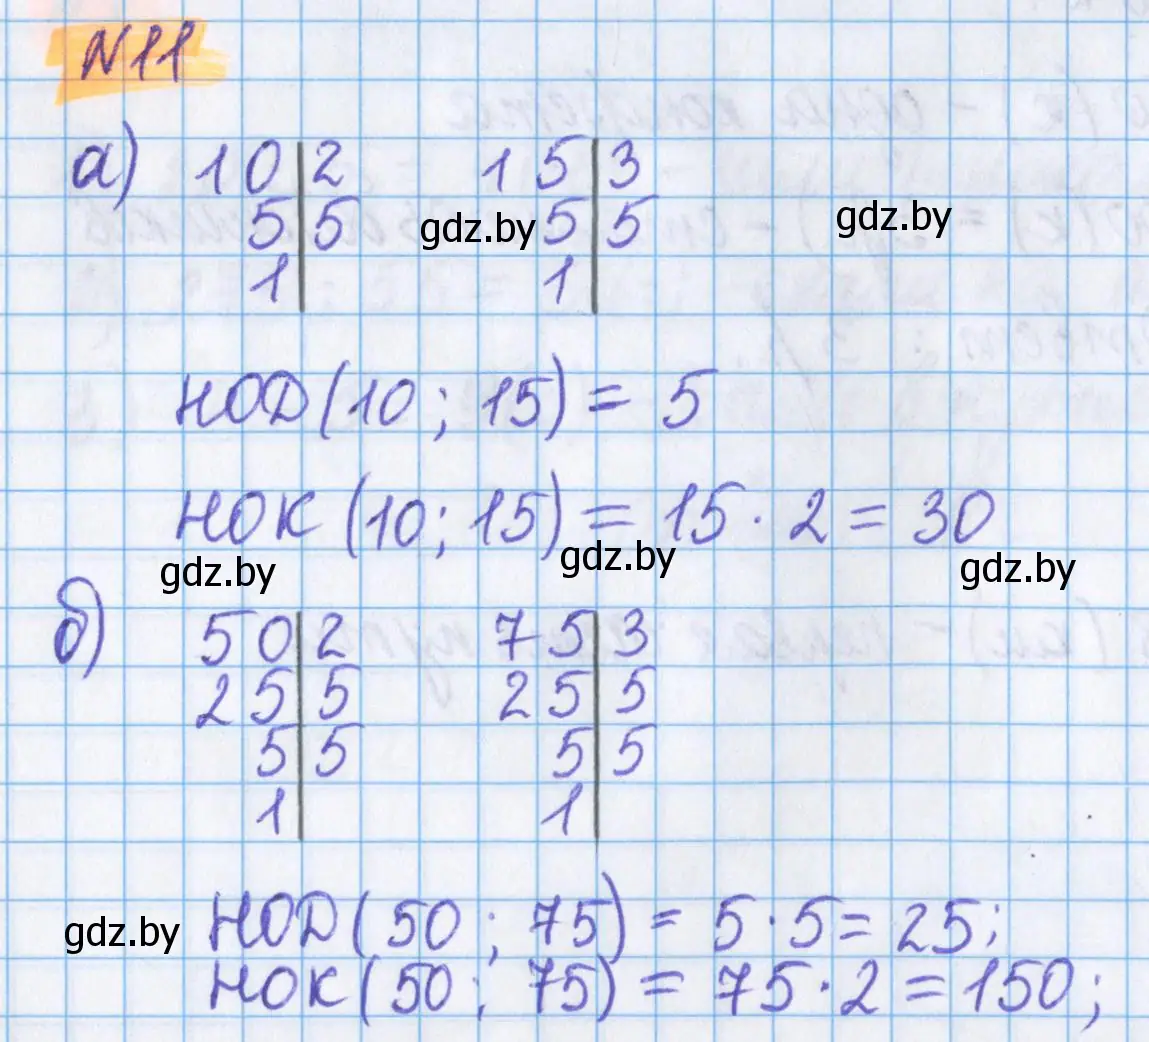 N11
а) 10 | 2   15 | 3
5 | 5   5 | 5
1 |   1 |
gdz.by gdz.by
НОД(10; 15) = 5
НОК(10; 15) = 15 · 2 = 30
gdz.by gdz.by gdz.by
б) 50 | 2   75 | 3
25 | 5   25 | 5
5 | 5   5 | 5
1 |   1 |
gdz.by НОД(50; 75) = 5 · 5 = 25;
НОК(50; 75) = 75 · 2 = 150;